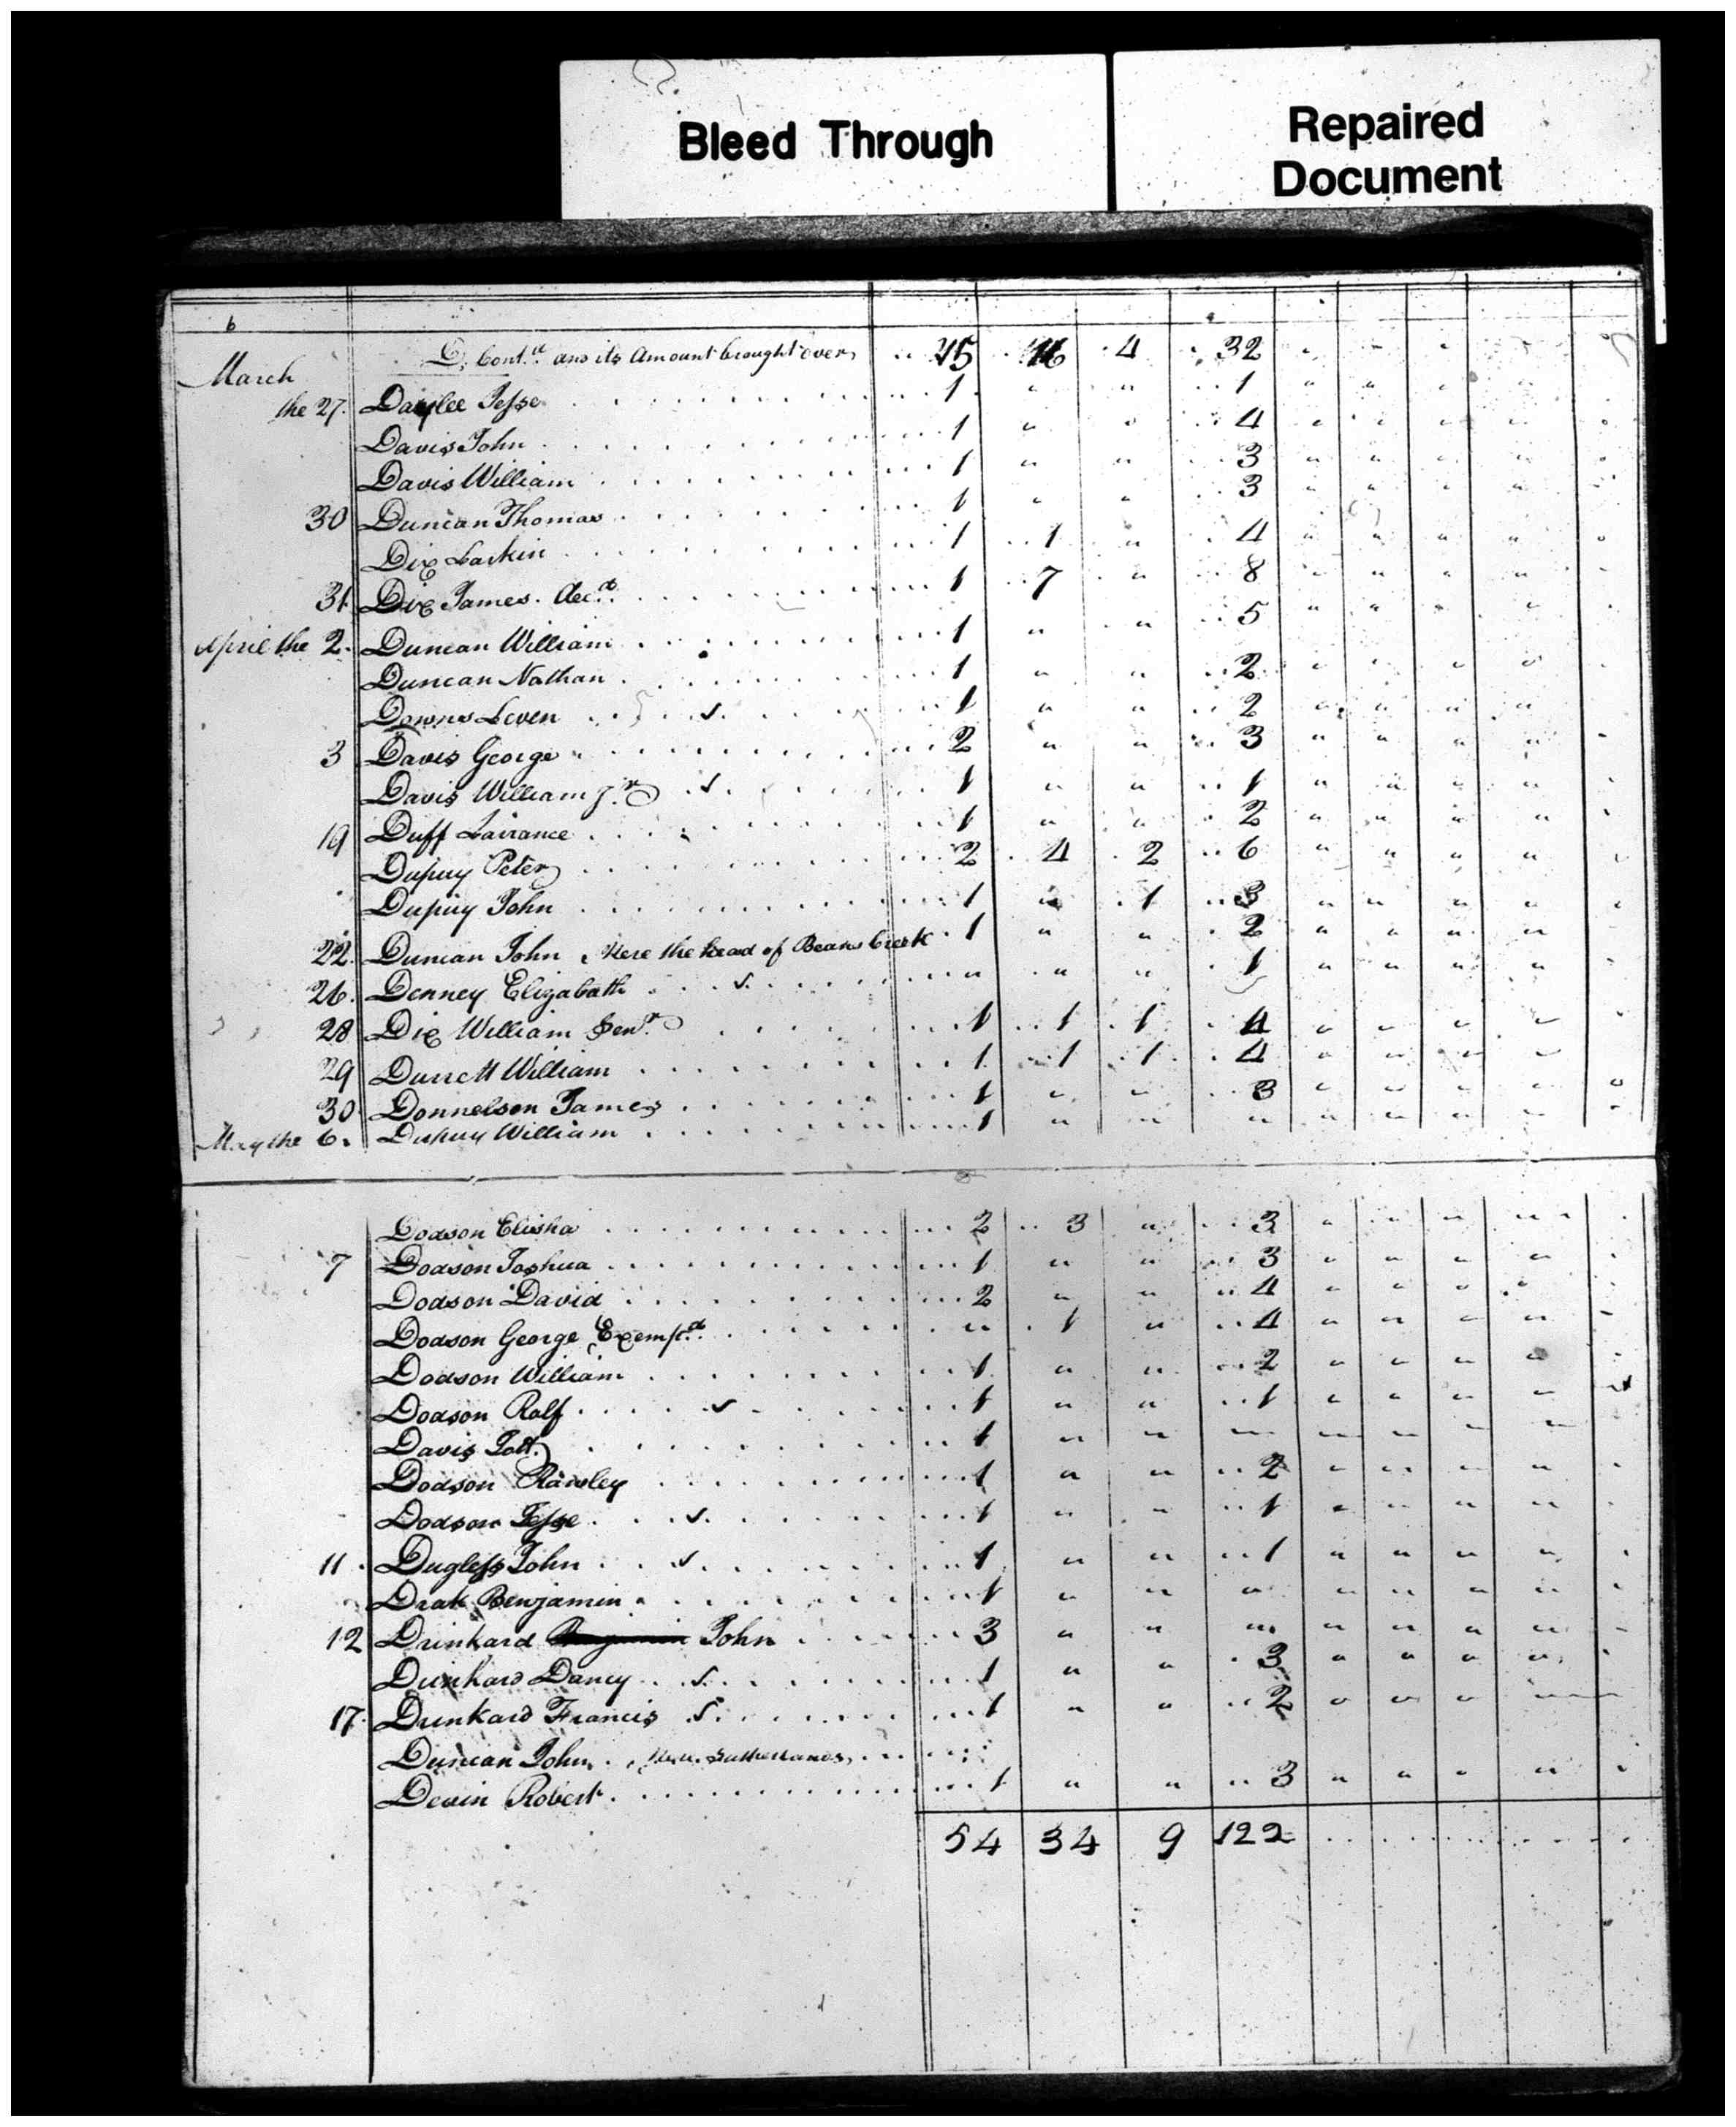 Bleed Through
Repaired
Document
6
D, Cont.d and its Amount brought over 15 16 4 32
March
the 27. Daylee Jesse 1 " " 1 " " " "
Davis John 1 " " 4 " " " "
Davis William 1 " " 3 " " " "
30 Duncan Thomas 1 " " 3 " " " "
Dix Larkin 1 1 " 4 " " " "
31. Dix James. dec.d 1 7 " 8 " " " "
April the 2. Duncan William 1 " " 5 " " " "
Duncan Nathan 1 " " 2 " " " "
Downs Leven 1 " " 2 " " " "
3 Davis George 2 " " 3 " " " "
Davis William J.r 1 " " 1 " " " "
19 Duff Lairance 1 " " 2 " " " "
Dupuy Peter 2 4 2 6 " " " "
Dupuy John 1 " 1 3 " " " "
22. Duncan John Nere the head of Beans Creek 1 " " 2 " " " "
26. Denney Elizabath " " " 1 " " " "
28 Dix William Sen.r 1 1 1 4 " " " "
29 Durrett William 1 1 1 4 " " " "
30 Donnelson James 1 " " 3 " " " "
May the 6. Dupuy William 1 " " " " " " "
Dodson Elisha 2 3 " 3 " " " "
7 Dodson Joshua 1 " " 3 " " " "
Dodson David 2 " " 4 " " " "
Dodson George Exempt.d " 1 " 4 " " " "
Dodson William 1 " " 2 " " " "
Dodson Ralf 1 " " 1 " " " "
Davis 1 " " " " " " "
Dodson Rawley 1 " " 2 " " " "
Dodson Jesse 1 " " 1 " " " "
11. Dugless John 1 " " 1 " " " "
Drak Benjamin 1 " " " " " " "
12 Drinkard John 3 " " " " " " "
Drinkard Dancy 1 " " 3 " " " "
17. Drinkard Francis 1 " " 2 " " " "
Duncan John. Nere Sutherlands
Devin Robert 1 " " 3 " " " "
54 34 9 122